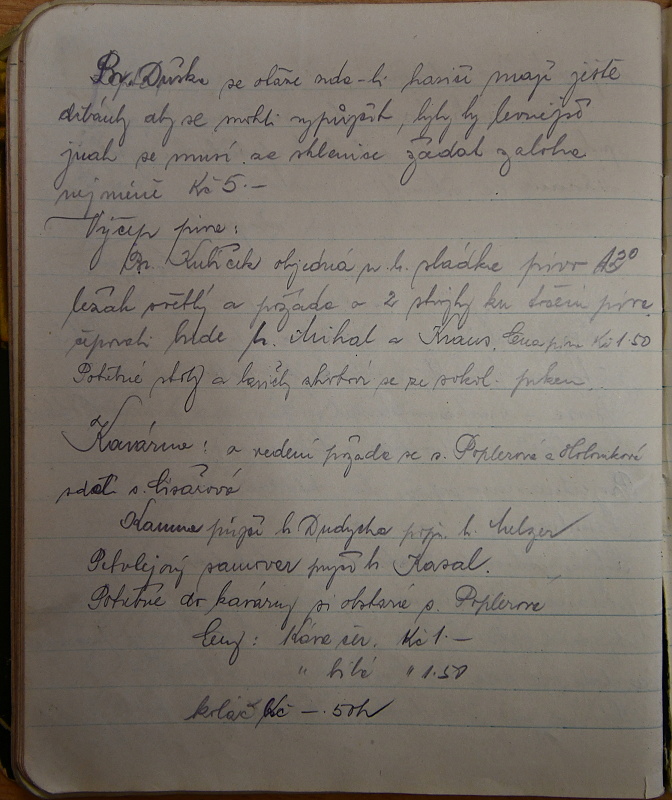 Br. Duška se otáže zda-li hasiči mají ještě
džbánky aby se mohli vypůjčit, byly by levnější
jinak se musí ze sklenice žádat záloha
nejméně Kč 5.-
Výčep piva:
Br. Kubíček objedná u b. sládka pivo 13°
ležák světlý a požádá o 2 stojky ku točení piva
čepovati bude b. Michal a Kraus. Cena piva Kč 1.50
Potřebné stoly a lavičky se ze sokol.
Kavárna: o vedení požádá se s. Poplerová a Holomková
s. Cisařová
Kamna půjčí b. Dudycha popř. b. Melzer
Petrolejový samovar půjčí b. Kasal.
Potřebné do kavárny si obstará s. Poplerová
Ceny: Káva čer. Kč 1.-
" bílá " 1.50
koláč Kč -.50h